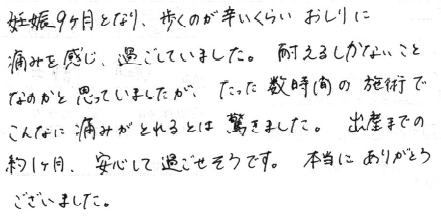 妊娠9ヶ月となり、歩くのが辛いくらい おしりに
痛みを感じ、過ごしていました。耐えるしかないこと
なのかと思っていましたが、たった数時間の施術で
こんなに痛みがとれるとは驚きました。出産までの
約1ヶ月、安心して過ごせそうです。本当にありがとう
ございました。